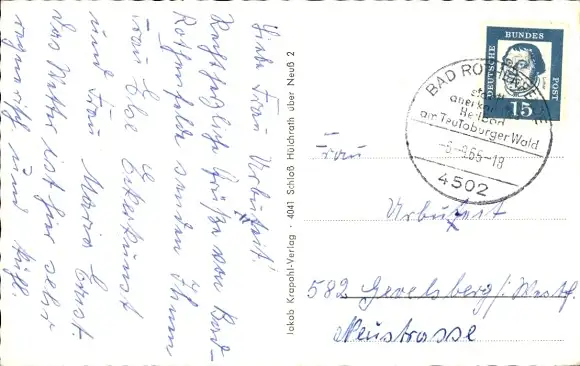 Liebe Frau Urbuteit!
Recht herzliche Grüße von Bad-
Rothenfelde senden Ihnen
Frau Else Eckerkunst
und Frau Maria Ernst.
Das Wetter ist hier sehr
regnerisch und kühl
Jakob Krapohl-Verlag · 4041 Schloß Hülchrath über Neuß 2
DEUTSCHE
BUNDES
POST
15
BAD RO
staatl.
anerk.
Heilbad
am Teutoburger Wald
-6-9.65-18
4502
Frau
Urbuteit
582 Gevelsberg/Westf.
Neustrasse